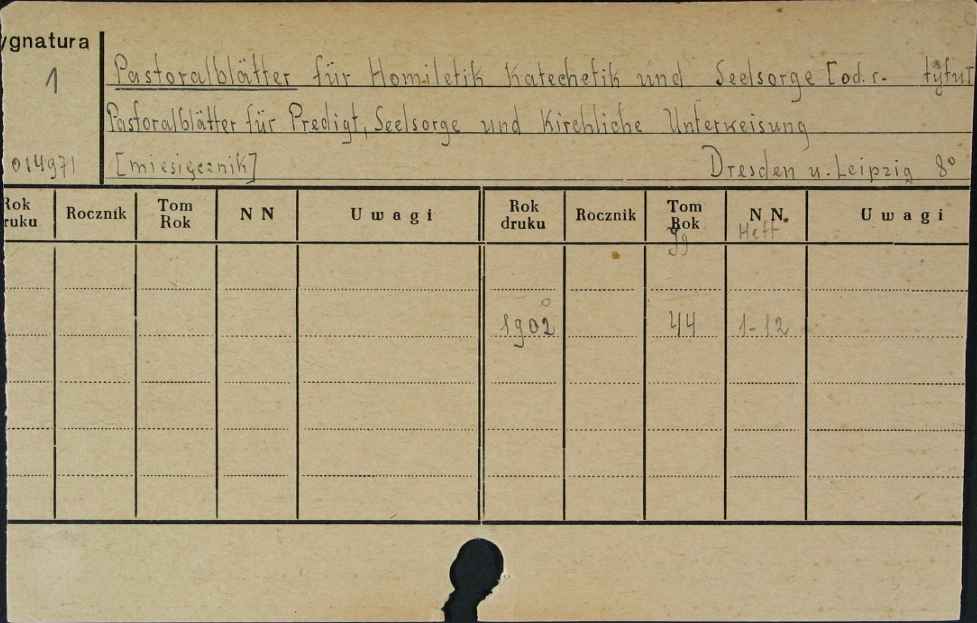 ygnatura
1
Pastoralblätter für Homiletik Katechetik und Seelsorge [od. r. tytuł
Pastoralblätter für Predigt, Seelsorge und Kirchliche Unterweisung
014971 [miesięcznik] Dresden u. Leipzig 8°
Rok druku Rocznik Tom Rok N N Uwagi Rok druku Rocznik Tom Rok N N. Uwagi
Jg Heft
1902 44 1-12